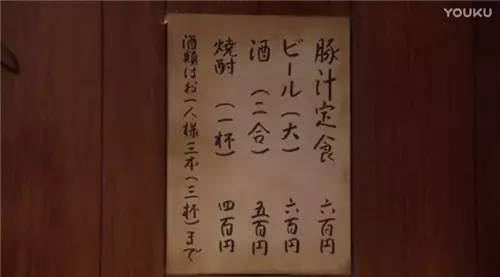 豚汁定食 六百円
ビール(大) 六百円
酒(二合) 五百円
焼酎(一杯) 四百円
酒類はお一人様三本(三杯)まで
YOUKU